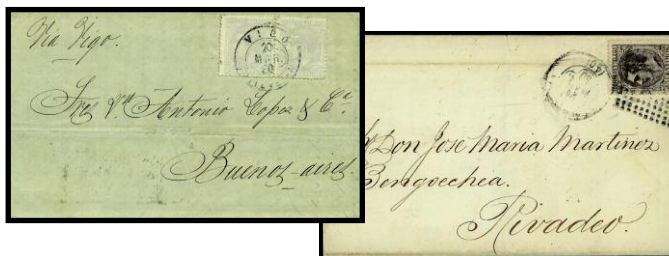 Via Vigo.
VIGO
Antonio Lopez & Cª.
Buenos-aires.
Don Jose Maria Martinez
Bengoechea.
Rivadeo.